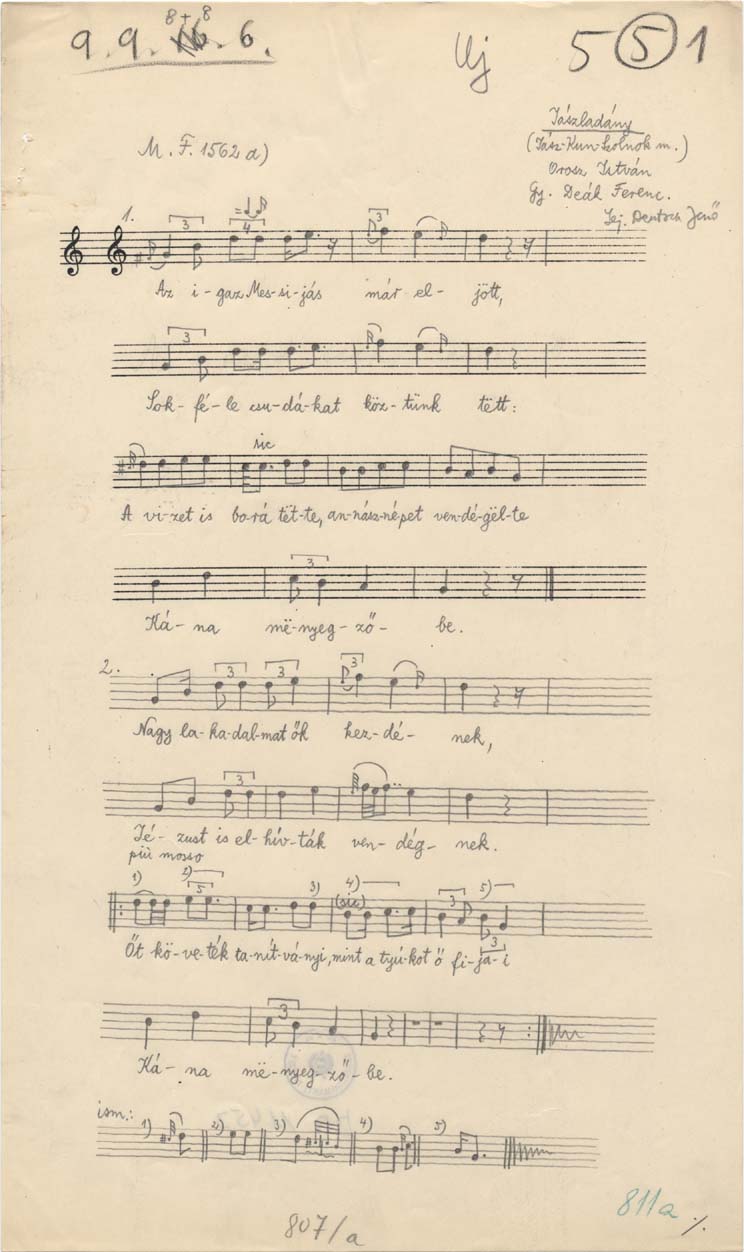 8+8
9. 9. 16. 6.
Uj
5 5 1
M. F. 1562 a)
Jászladány
(Jász-Kun-Szolnok m.)
Orosz István
Gy. Deák Ferenc.
Lej. Deutsch Jenő
1.
3
4
3
Az i-gaz Mes-si-jás már el- jött,
3
Sok-fé-le csu-dá-kat köz-tünk tëtt:
sic
A vi-zet is bo-rá tët-te, an-nász-népet ven-dé-gël-te
3
Ká-na më-nyeg-ző- be.
2.
3
3
3
Nagy la-ka-dal-mat ők kez-dé- nek,
3
Jé- zust is el-hív-ták ven- dég- nek.
più mosso
1) 2) 5 3) 4) (sic) 3 5) 3
Őt kö-ve-ték ta-nít-vá-nyi, mint a tyúkot ő fi-ja-i
3
Ká-na më-nyeg-ző-be.
ism.: 1) 2) 3) 4) 5)
807/a
811a ·/.